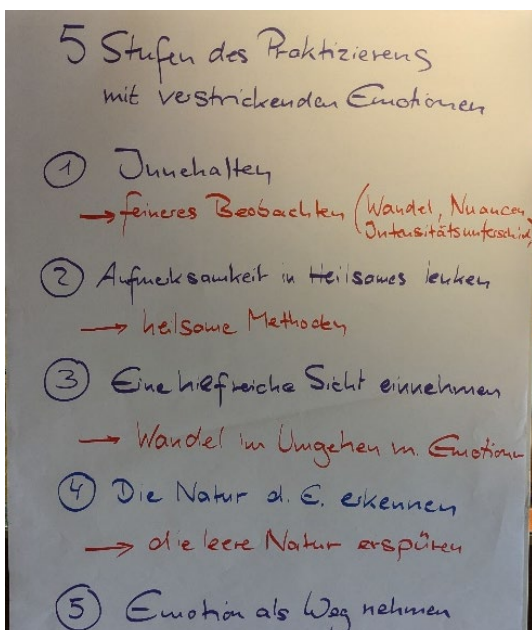 5 Stufen des Praktizierens
mit verstrickenden Emotionen
1 Innehalten
→ feineres Beobachten (Wandel, Nuancen,
Intensitätsunterschied
2 Aufmerksamkeit in Heilsames lenken
→ heilsame Methoden
3 Eine hilfreiche Sicht einnehmen
→ Wandel im Umgehen m. Emotionen
4 Die Natur d. E. erkennen
→ die leere Natur erspüren
5 Emotion als Weg nehmen